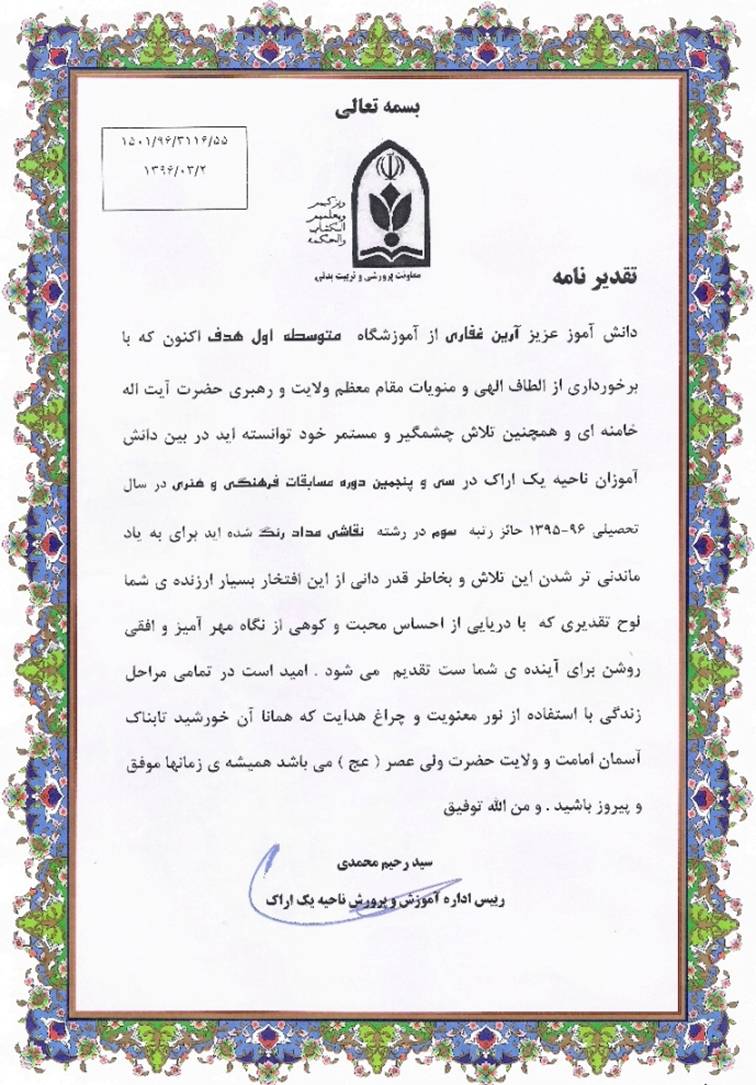 بسمه تعالی
۱۵۰۱/۹۶/۳۱۱۶/۵۵
۱۳۹۶/۰۳/۲
ویزکیهم
ویعلمهم
الکتاب
والحکمه
معاونت پرورشی و تربیت بدنی
تقدیر نامه
دانش آموز عزیز آرین غفاری از آموزشگاه متوسطه اول هدف اکنون که با
برخورداری از الطاف الهی و منویات مقام معظم ولایت و رهبری حضرت آیت اله
خامنه ای و همچنین تلاش چشمگیر و مستمر خود توانسته اید در بین دانش
آموزان ناحیه یک اراک در سی و پنجمین دوره مسابقات فرهنگی و هنری در سال
تحصیلی ۹۶-۱۳۹۵ حائز رتبه سوم در رشته نقاشی مداد رنگ شده اید برای به یاد
ماندنی تر شدن این تلاش و بخاطر قدر دانی از این افتخار بسیار ارزنده ی شما
لوح تقدیری که با دریایی از احساس محبت و کوهی از نگاه مهر آمیز و افقی
روشن برای آینده ی شما ست تقدیم می شود . امید است در تمامی مراحل
زندگی با استفاده از نور معنویت و چراغ هدایت که همانا آن خورشید تابناک
آسمان امامت و ولایت حضرت ولی عصر ( عج ) می باشد همیشه ی زمانها موفق
و پیروز باشید . و من الله توفیق
سید رحیم محمدی
رییس اداره آموزش و پرورش ناحیه یک اراک